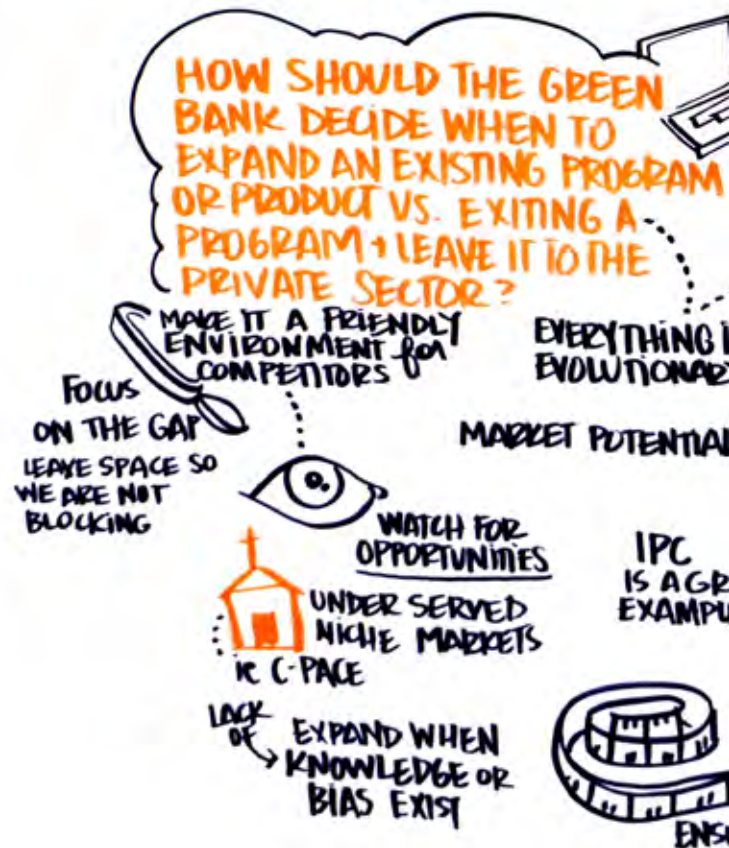 HOW SHOULD THE GREEN
BANK DECIDE WHEN TO
EXPAND AN EXISTING PROGRAM
OR PRODUCT VS. EXITING A
PROGRAM + LEAVE IT TO THE
PRIVATE SECTOR?
MAKE IT A FRIENDLY
ENVIRONMENT for
COMPETITORS
FOCUS
ON THE GAP
LEAVE SPACE SO
WE ARE NOT
BLOCKING
EVERYTHING I
EVOLUTIONAR
MARKET POTENTIAL
WATCH FOR
OPPORTUNITIES
IPC
IS A GR
EXAMPL
UNDER SERVED
NICHE MARKETS
ie C-PACE
LACK
OF
EXPAND WHEN
KNOWLEDGE OR
BIAS EXIST
ENS